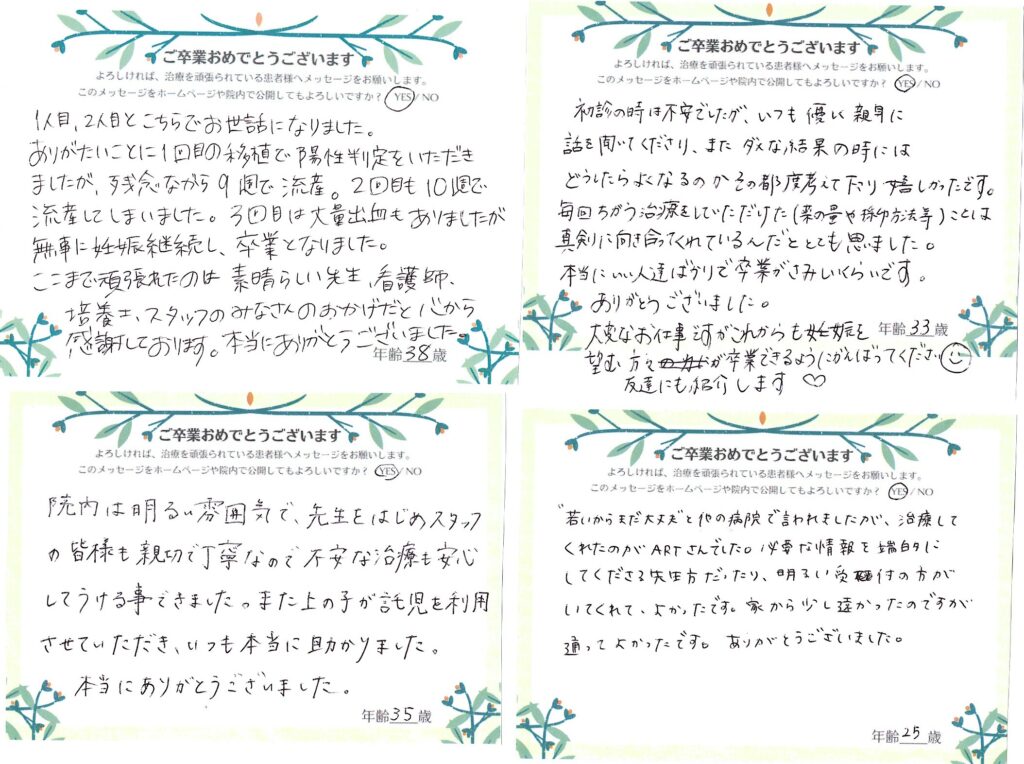 ご卒業おめでとうございます
よろしければ、治療を頑張られている患者様へメッセージをお願いします。
このメッセージをホームページや院内で公開してもよろしいですか? YES/NO
1人目、2人目とこちらでお世話になりました。
ありがたいことに1回目の移植で陽性判定をいただき
ましたが、残念ながら9週で流産。2回目も10週で
流産してしまいました。3回目は大量出血もありましたが
無事に妊娠継続し、卒業となりました。
ここまで頑張れたのは素晴らしい先生、看護師、
培養士、スタッフのみなさんのおかげだと心から
感謝しております。本当にありがとうございました。
年齢38歳
ご卒業おめでとうございます
よろしければ、治療を頑張られている患者様へメッセージをお願いします。
このメッセージをホームページや院内で公開してもよろしいですか? YES/NO
初診の時は不安でしたが、いつも優しく親身に
話を聞いてくださり、またダメな結果の時には
どうしたらよくなるのかその都度考えて下さり嬉しかったです。
毎回ちがう治療をしていただけた(薬の量や採卵方法等)ことは
真剣に向き合ってくれているんだととても思いました。
本当にいい人達ばかりで卒業がさみしいくらいです。
ありがとうございました。
大変なお仕事ですがこれからも妊娠を
望む方々が卒業できるようにがんばってください
友達にも紹介します♡
年齢33歳
ご卒業おめでとうございます
よろしければ、治療を頑張られている患者様へメッセージをお願いします。
このメッセージをホームページや院内で公開してもよろしいですか? YES/NO
院内は明るい雰囲気で、先生をはじめスタッフ
の皆様も親切で丁寧なので不安な治療も安心
してうける事できました。また上の子が託児を利用
させていただき、いつも本当に助かりました。
本当にありがとうございました。
年齢35歳
ご卒業おめでとうございます
よろしければ、治療を頑張られている患者様へメッセージをお願いします。
このメッセージをホームページや院内で公開してもよろしいですか? YES/NO
"若いからまだ大丈夫"と他の病院で言われましたが、治療して
くれたのがARTさんでした。必要な情報を端的に
してくださる先生方だったり、明るい受付の方が
いてくれて、よかったです。家から少し遠かったのですが
通ってよかったです。ありがとうございました。
年齢25歳